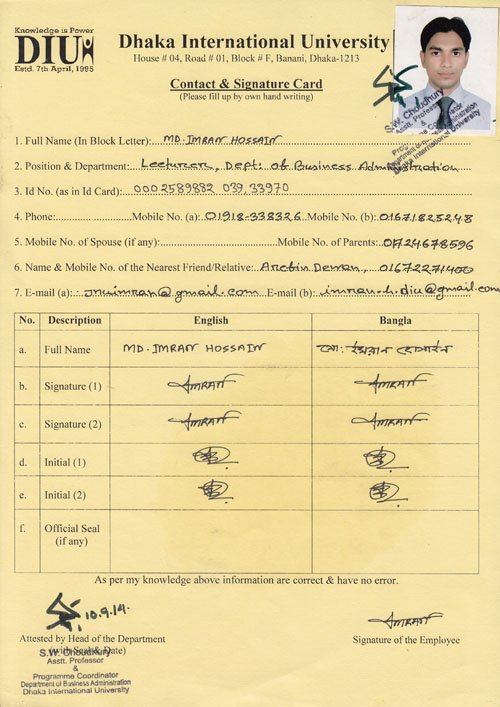 Knowledge is Power
DIU
Estd. 7th April, 1995
Dhaka International University
House # 04, Road # 01, Block # F, Banani, Dhaka-1213
Contact & Signature Card
(Please fill up by own hand writing)
S.W. Choudhury
Asstt. Professor
&
Programme Coordinator
Department of Business Administration
Dhaka International University
1. Full Name (In Block Letter): MD. IMRAN HOSSAIN
2. Position & Department: Lecturer, Dept: of Business Administration
3. Id No. (as in Id Card): 0002589882 039,33970
4. Phone: Mobile No. (a): 01918-338326 Mobile No. (b): 01671825248
5. Mobile No. of Spouse (if any): Mobile No. of Parents: 01724678596
6. Name & Mobile No. of the Nearest Friend/Relative: Arefin Dewan, 01672271400
7. E-mail (a): jnuimran@gmail.com E-mail (b): imran.h.diu@gmail.com
No. Description English Bangla
a. Full Name MD. IMRAN HOSSAIN মো: ইমরান হোসাইন
b. Signature (1) IMRAN IMRAN
c. Signature (2) IMRAN IMRAN
d. Initial (1)
e. Initial (2)
f. Official Seal
(if any)
As per my knowledge above information are correct & have no error.
10.9.14.
IMRAN
Attested by Head of the Department
(with Seal & Date)
Signature of the Employee
S.W. Choudhury
Asstt. Professor
&
Programme Coordinator
Department of Business Administration
Dhaka International University